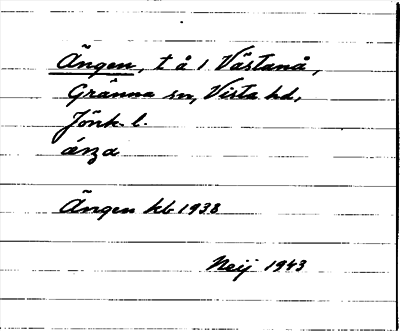 Ängen, t å 1 Västanå,
Gränna sn, Vista hd,
Jönk. l.
ánza
Ängen kb 1938
Neij 1943